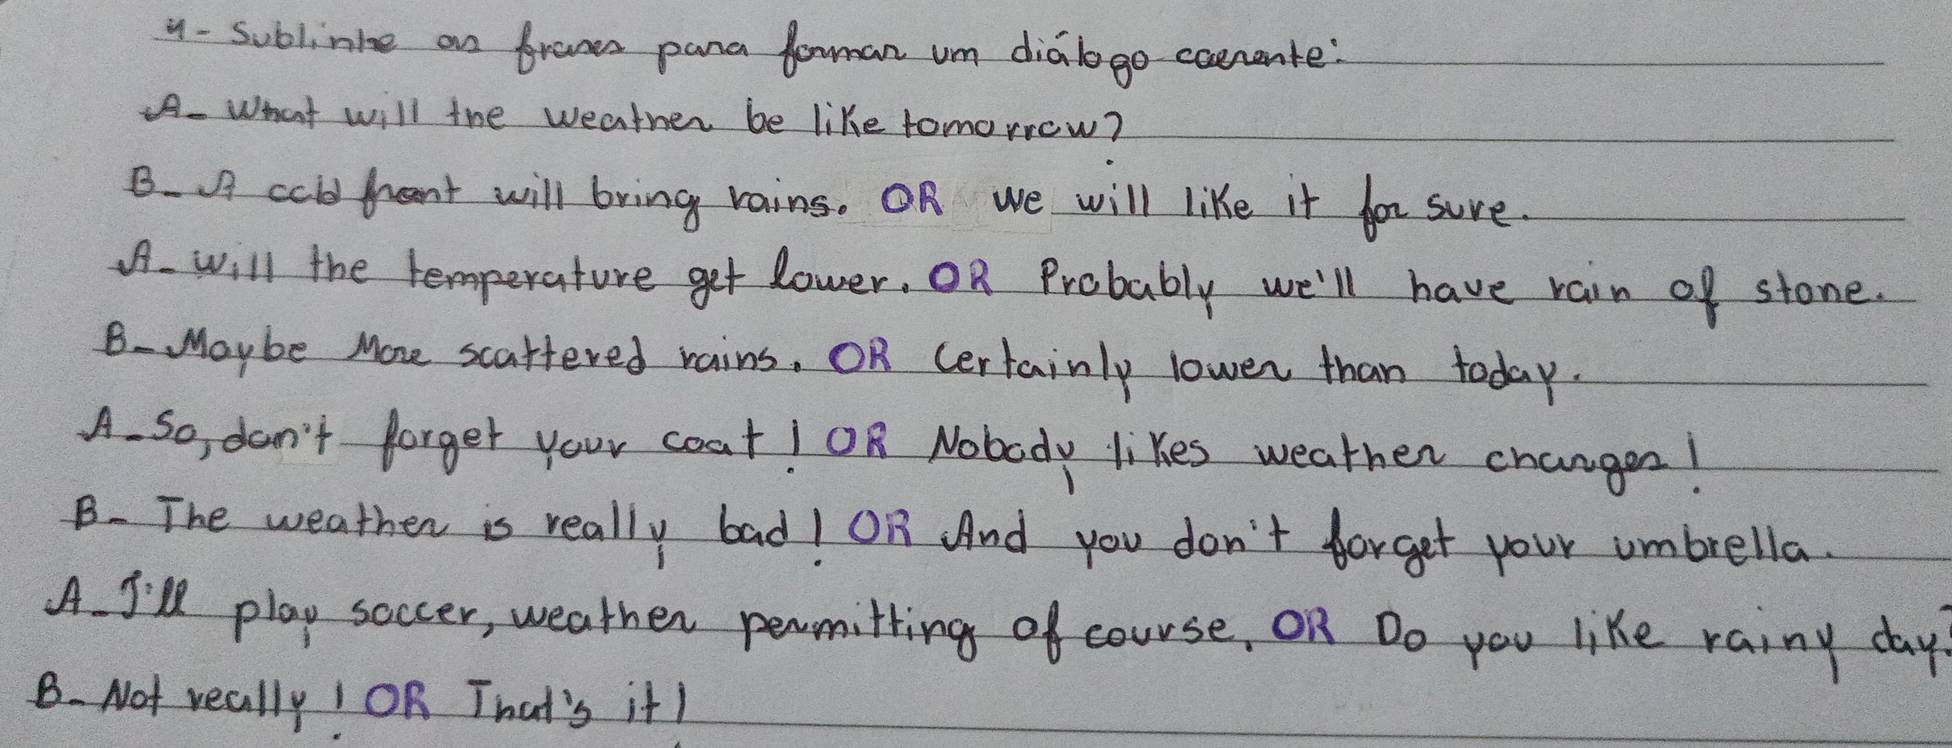 4- Sublinhe as frases para formar um diálogo coerente:
A- What will the weather be like tomorrow?
B- A cold front will bring rains. OR We will like it for sure.
A- Will the temperature get lower. OR Probably we'll have rain of stone.
B- Maybe More scattered rains. OR Certainly lower than today.
A- So, don't forget your coat! OR Nobody likes weather changes!
B- The weather is really bad! OR And you don't forget your umbrella.
A- I'll play soccer, weather permitting of course. OR Do you like rainy day?
B- Not really! OR That's it!